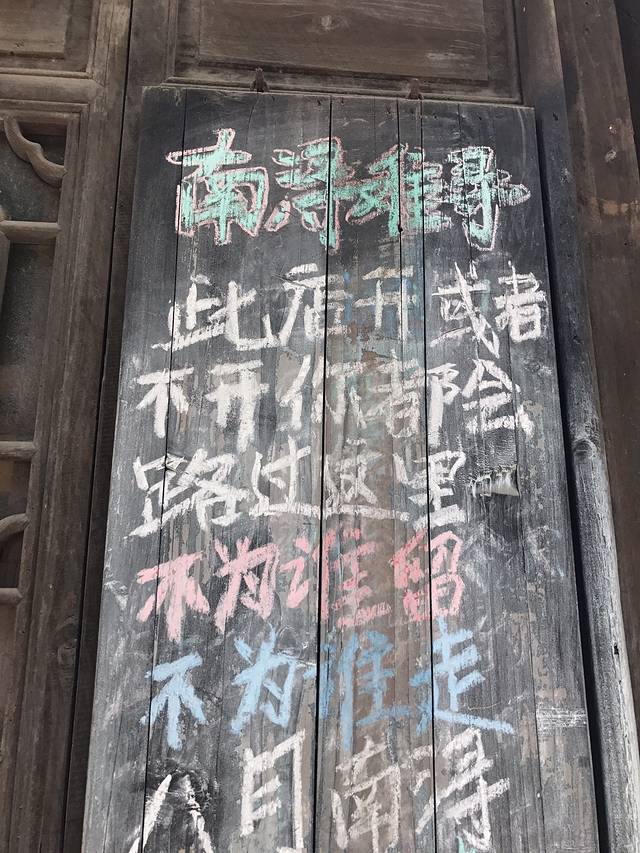 南浔难寻
此店开或者
不开你都会
路过这里
不为谁留
不为谁走
八月南浔